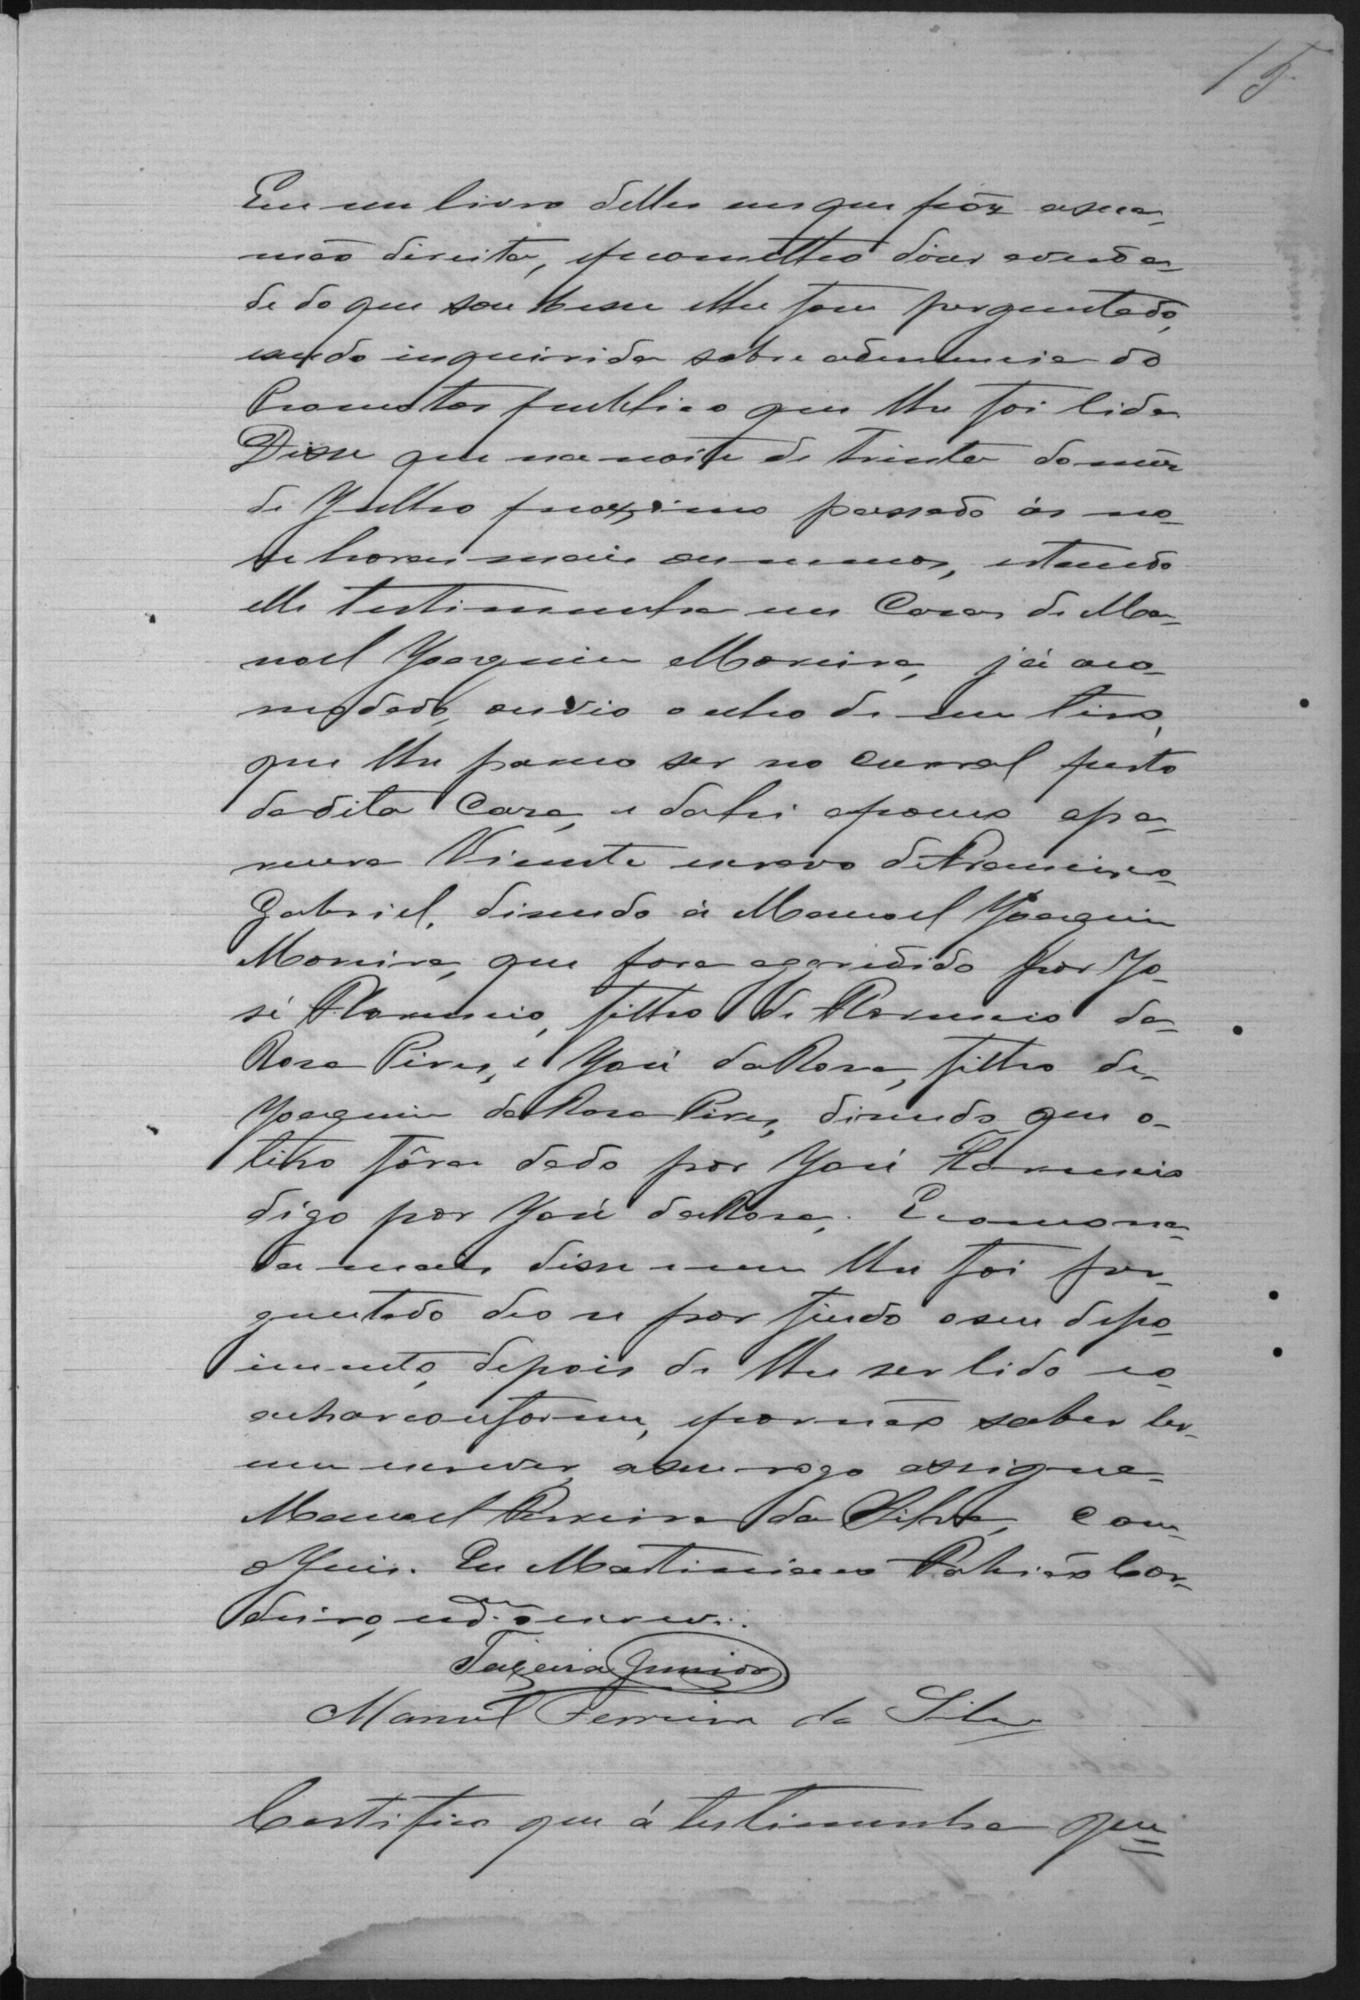 15
Em um livro delles em que pôz a sua
mão direita, e prometteo dizer a verda-
de do que soubesse e lhe fosse perguntado,
e sendo inquirida sobre a denuncia do
Promotor publico que lhe foi lida
Disse que na noite de trinta do mez
de Julho proximo passado ás no-
ve horas mais ou menos, estando
elle testimunha em Casa de Ma-
noel Joaquim Moreira, já aco-
modado, ouvio o echo de um tiro,
que lhe pareceo ser no curral perto
da dita Casa, e dahi apouco apa-
recera Vicente escravo de Francisco
Gabriel, disendo á Manoel Joaquim
Moreira, que fora agoridido por Jo-
sé Florencio, filho de Florencio da
Rosa Pires, e José da Rosa, filho de
Joaquim da Rosa Pires, disendo que o
tiro fôra dado por José Florencio
digo por José da Rosa. E como na-
da mais disse e nem lhe foi per-
guntado deo se por findo o seu depo-
imento, depois de lhe ser lido e o
achar conforme, e por não saber ler
nem escrever, a seu rogo assigna
Manoel Ferreira da Silva, com
o Juiz. Eu Martiniano Patricio Cor-
deiro, escrevi.
Teixeira Junior
Manoel Ferreira da Silva
Certifico que á testimunha que